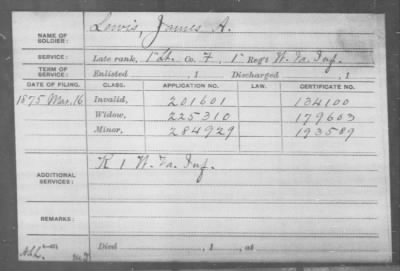 NAME OF SOLDIER: Lewis, James A.
SERVICE: Late rank, 1 Lt. Co. F, 1 Reg't W. Va. Inf.
TERM OF SERVICE: Enlisted , 1 Discharged , 1
DATE OF FILING. CLASS. APPLICATION NO. LAW. CERTIFICATE NO.
1875 Mar. 16 Invalid, 201601 134100
Widow, 225310 179603
Minor, 284929 193589
ADDITIONAL SERVICES: K 1 W. Va. Inf.
REMARKS:
Died , 1 , at